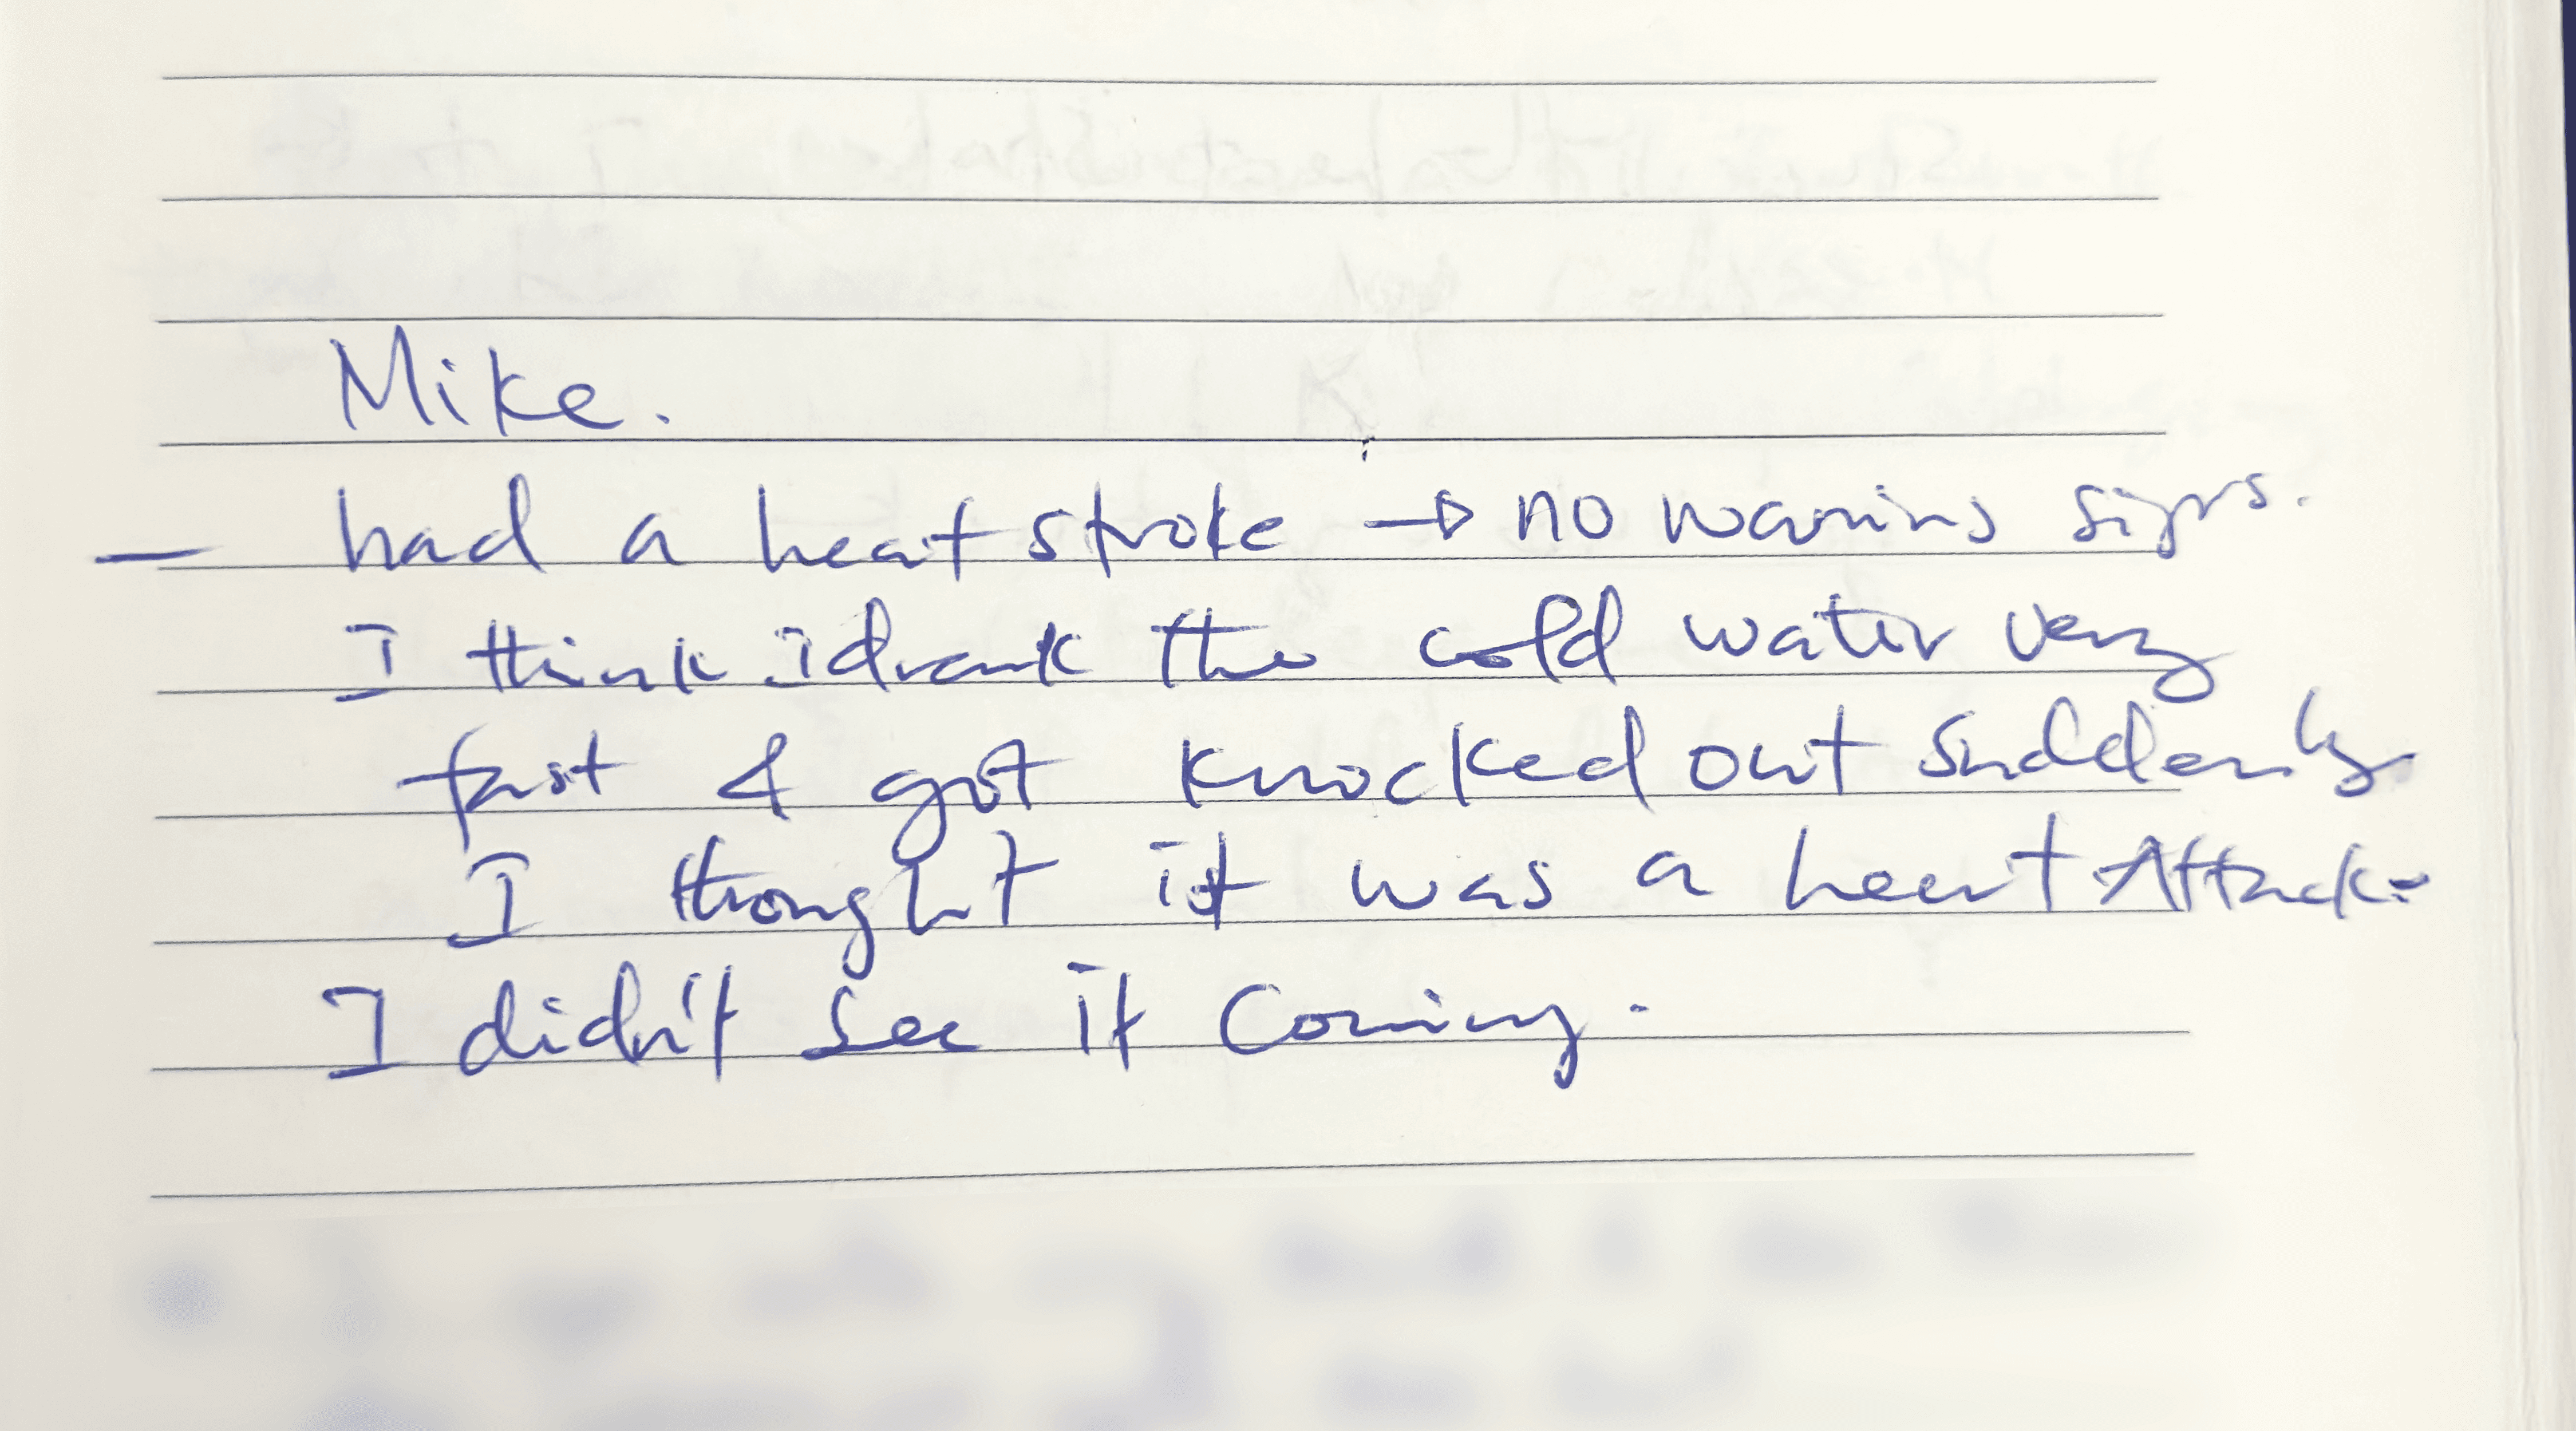 Mike.
— had a heat stroke → no warning signs.
I think i drank the cold water very
fast & got knocked out suddenly
I thought it was a heart Attack.
I didn't see it coming.